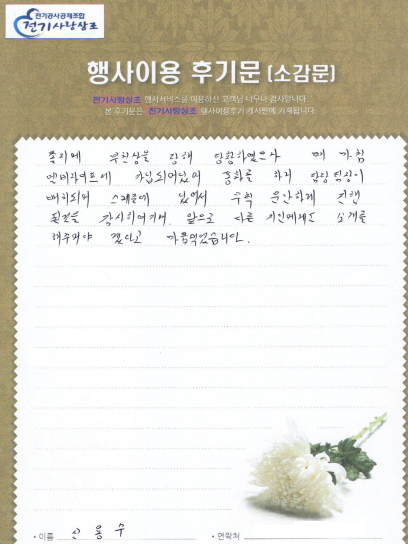 전기공사공제조합
전기사랑상조
행사이용 후기문 [소감문]
전기사랑상조 행사서비스를 이용하신 고객님 너무나 감사합니다.
본 후기문은 전기사랑상조 행사이용후기 게시판에 기재됩니다.
졸지에 부친상을 당해 당황하였으나 때 마침
엔비라이프에 가입되어있어 통화를 하니 담당팀장이
배치되어 스케줄에 있어서 무척 운안하게 진행
됨을 감사하며 앞으로 다른 지인에게도 소개를
해주어야 겠다고 마음먹었습니다.
• 이름 신용수
• 연락처